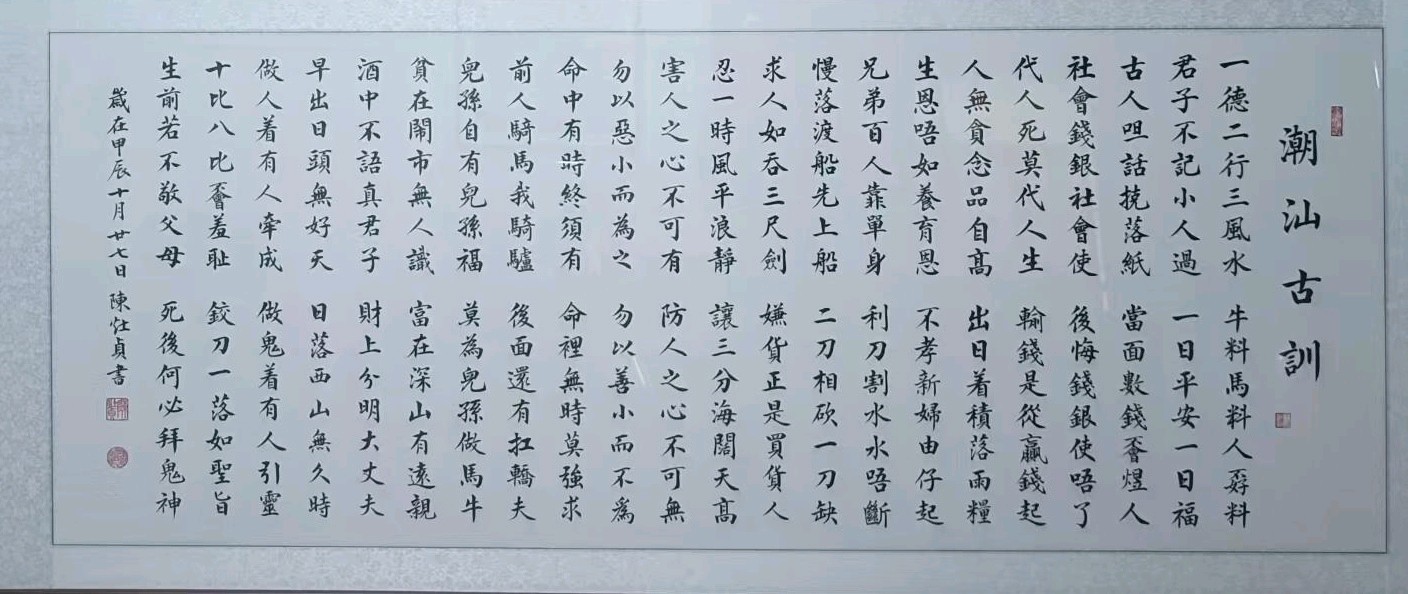 潮汕古訓
一德二行三風水 牛料馬料人孬料
君子不記小人過 一日平安一日福
古人呾話㧣落紙 當面數錢𫢗煜人
社會錢銀社會使 後悔錢銀使唔了
代人死莫代人生 輸錢是從贏錢起
人無貪念品自高 出日着積落雨糧
生恩唔如養育恩 不孝新婦由仔起
兄弟百人靠單身 利刀割水水唔斷
慢落渡船先上船 二刀相砍一刀缺
求人如吞三尺劍 嫌貨正是買貨人
忍一時風平浪靜 讓三分海闊天高
害人之心不可有 防人之心不可無
勿以惡小而為之 勿以善小而不爲
命中有時終須有 命裡無時莫強求
前人騎馬我騎驢 後面還有扛轎夫
兒孫自有兒孫福 莫為兒孫做馬牛
貧在鬧市無人識 富在深山有遠親
酒中不語真君子 財上分明大丈夫
早出日頭無好天 日落西山無久時
做人着有人牽成 做鬼着有人引靈
十比八比𫢗羞耻 鉸刀一落如聖旨
生前若不敬父母 死後何必拜鬼神
歲在甲辰十月廿七日 陳灶貞書